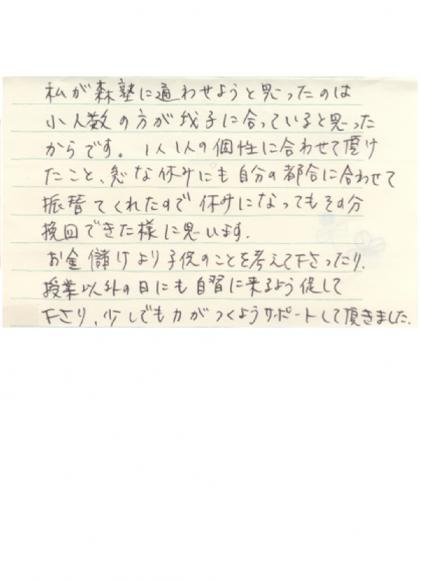 私が森塾に通わせようと思ったのは
小人数の方が我子に合っていると思った
からです。1人1人の個性に合わせて頂け
たこと、急な休みにも自分の都合に合わせて
振替てくれたので休みになってもその分
挽回できた様に思います。
お金儲けより子供のことを考えて下さったり、
授業以外の日にも自習に来るよう促して
下さり、少しでも力がつくようサポートして頂きました。